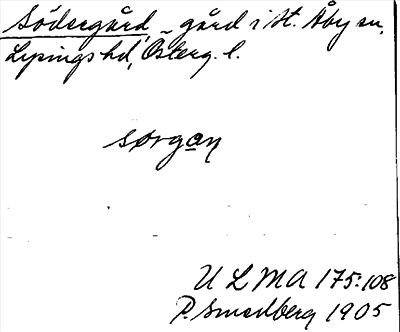 Södergård, – gård i St. Åby sn,
Lysings hd, Österg. l.
sørgan
ULMA 175:108
P. Smedberg 1905